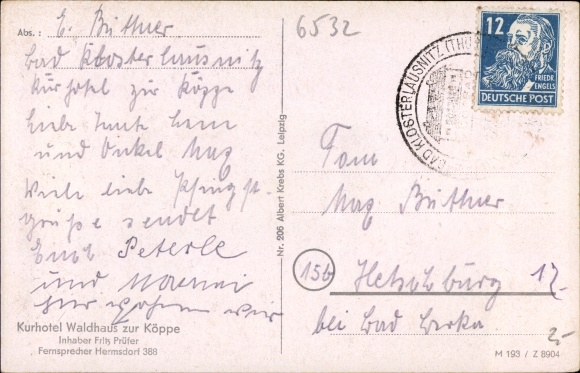 Abs.: E. Büttner
Bad Klosterlausnitz
Kurhotel zur Köppe
Liebe Tante
und Onkel Max
Viele liebe Pfingst-
grüße sendet
Euch Peterle
und Mammi
hier wohnen wir
Kurhotel Waldhaus zur Köppe
Inhaber Fritz Prüfer
Fernsprecher Hermsdorf 388
Nr. 206 Albert Krebs KG. Leipzig
6532
BAD KLOSTERLAUSNITZ (THÜ
12
FRIEDR.
ENGELS
DEUTSCHE POST
Fam
Max Büttner
15b
Hetschburg 12
bei Bad Berka
M 193 / Z 8904